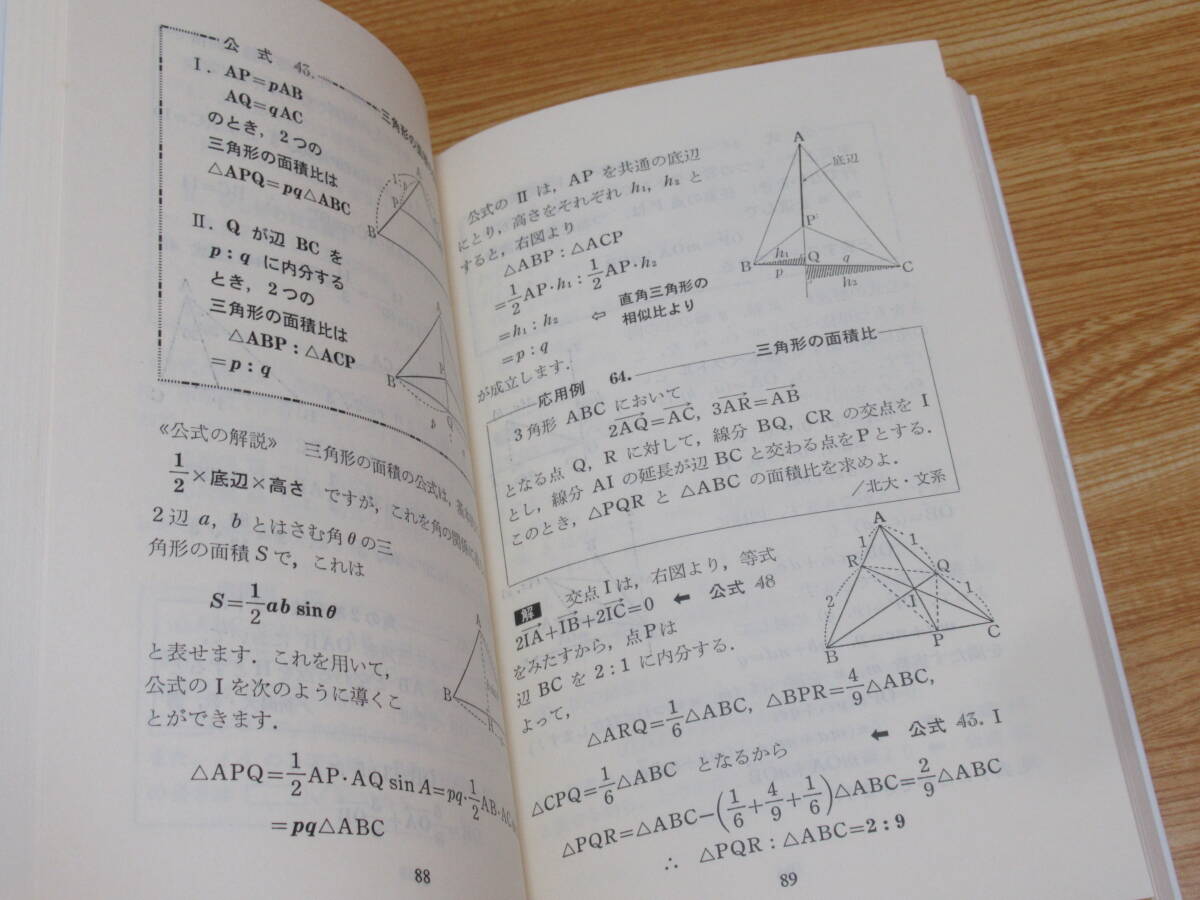 公式 43.
三角形の
I. AP=pAB
AQ=qAC
のとき，2つの
三角形の面積比は
△APQ=pq△ABC
A
P
B
1
p
II. Q が辺 BC を
p：q に内分する
とき，2つの
三角形の面積比は
△ABP：△ACP
=p：q
B
p
Q
《公式の解説》 三角形の面積の公式は，基
1/2×底辺×高さ ですが，これを角の関係に
2辺 a，b とはさむ角θの三
角形の面積Sで，これは
S=1/2 ab sinθ
と表せます．これを用いて，
公式のIを次のように導くこ
とができます．
A
B
H
△APQ=1/2 AP・AQ sin A=pq・1/2 AB・AC
=pq△ABC
88
公式の II は，AP を共通の底辺
にとり，高さをそれぞれ h₁，h₂ と
すると，右図より
△ABP：△ACP
=1/2 AP・h₁：1/2 AP・h₂
=h₁：h₂ ⇦ 直角三角形の
相似比より
=p：q
が成立します．
A
底辺
P
B
h₁
p
Q
q
h₂
C
応用例 64. 三角形の面積比
3角形 ABC において
2AQ→=AC→，3AR→=AB→
となる点 Q，R に対して，線分 BQ，CR の交点を I
とし，線分 AI の延長が辺 BC と交わる点をPとする．
このとき，△PQR と △ABC の面積比を求めよ．
／北大・文系
解 交点Iは，右図より，等式
2IA→+IB→+2IC→=0 ← 公式 48
をみたすから，点Pは
辺 BC を 2：1 に内分する．
よって，
A
1
1
R
Q
2
I
1
B
P
C
△ARQ=1/6△ABC，△BPR=4/9△ABC，
← 公式 43. I
△CPQ=1/6△ABC となるから
△PQR=△ABC−(1/6+4/9+1/6)△ABC=2/9△ABC
∴ △PQR：△ABC=2：9
89